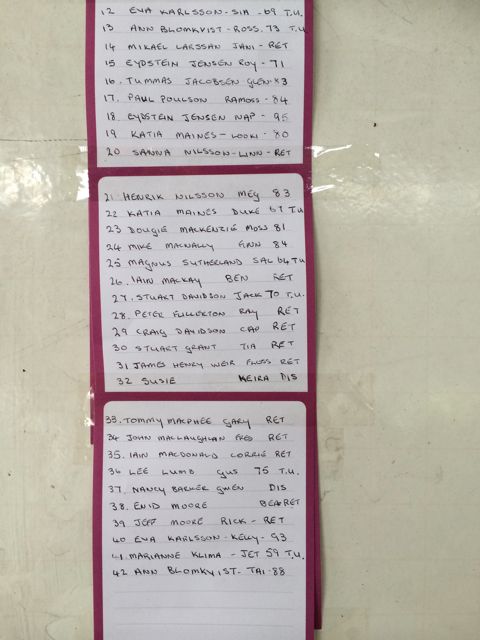 12 EVA KARLSSON-SIA - 69 T.U.
13 ANN BLOMKVIST-ROSS. 73 T.U
14 MIKAEL LARSSAN JANI - RET
15 EYDSTEIN JENSEN ROY - 71
16. TUMMAS JACOBSEN GLEN-
17. PAUL POULSON RAMOSS - 84
18 EYDSTEIN JENSEN NAP - 95
19 KATIA MAINES - LOOKI - 80
20 SANNA NILSSON-LINN - RET
21 HENRIK NILSSON MEG 83
22 KATIA MAINES DUKE 67 T.U
23 DOUGIE MACKENZIE MOSS 81
24 MIKE MACNALLY FINN 84
25 MAGNUS SUTHERLAND SAL 64 TU
26. IAIN MACKAY BEN RET
27. STUART DAVIDSON JACK 70 T.U.
28. PETER FULLERTON RAY RET
29 CRAIG DAVIDSON CAP RET
30 STUART GRANT TIA RET
31 JAMES HENRY WEIR FLOSS RET
32 SUSIE KEIRA DIS
33. TOMMY MACPHEE GARY RET
34 JOHN MACLAUGHLAN RET
35. IAIN MACDONALD CORRIE RET
36 LEE LUMB GUS 75 T.U.
37. NANCY BARKER GWEN DIS
38. ENID MOORE RET
39 JEFF MOORE RICK - RET
40 EVA KARLSSON-KELLY - 93
41 MARIANNE KLIMA - JET 59 T.U.
42 ANN BLOMKVIST- TAI - 88